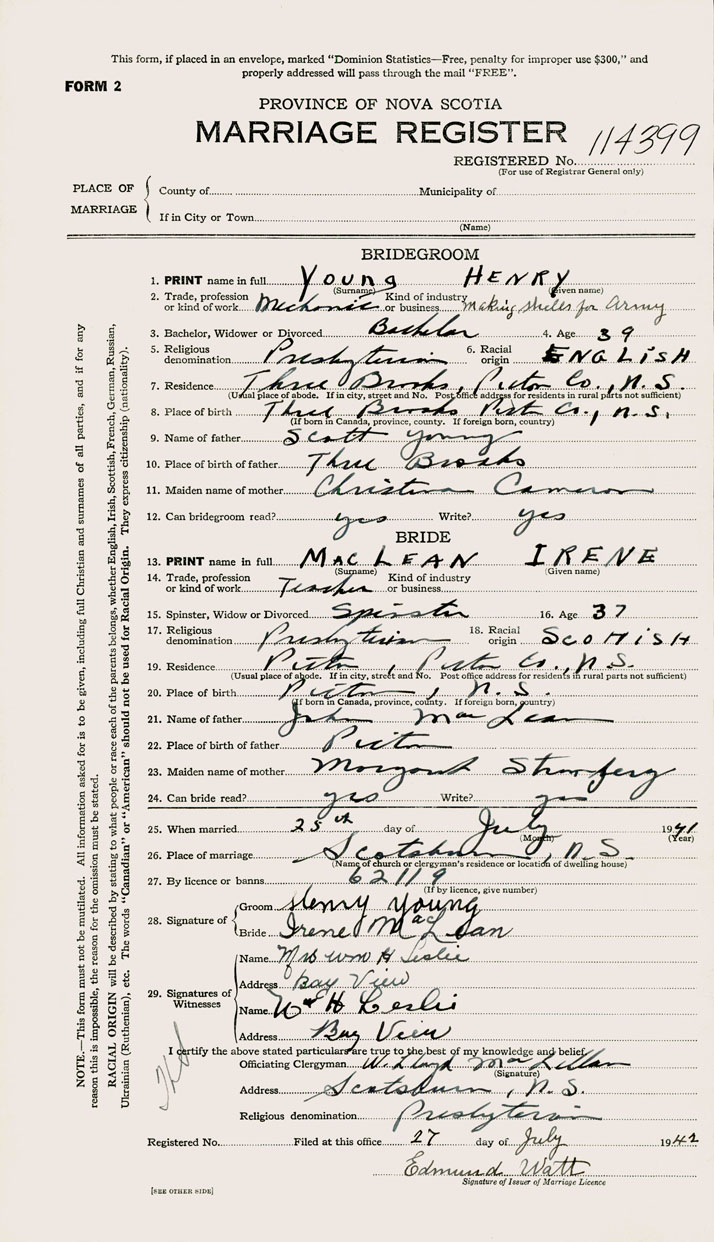 This form, if placed in an envelope, marked “Dominion Statistics—Free, penalty for improper use $300,” and
properly addressed will pass through the mail “FREE”.
FORM 2
PROVINCE OF NOVA SCOTIA
MARRIAGE REGISTER
114399
REGISTERED No.
(For use of Registrar General only)
PLACE OF MARRIAGE
County of Municipality of
If in City or Town
(Name)
BRIDEGROOM
1. PRINT name in full Young HENRY
(Surname) (Given name)
2. Trade, profession or kind of work Mechanic Kind of industry or business making shells for Army
3. Bachelor, Widower or Divorced Bachelor 4. Age 39
5. Religious denomination Presbyterian 6. Racial origin ENGLISH
7. Residence Three Brooks, Pictou Co., N.S.
(Usual place of abode. If in city, street and No. Post office address for residents in rural parts not sufficient)
8. Place of birth Three Brooks Pict Co., N.S.
(If born in Canada, province, county. If foreign born, country)
9. Name of father Scott Young
10. Place of birth of father Three Brooks
11. Maiden name of mother Christina Cameron
12. Can bridegroom read? yes Write? yes
BRIDE
13. PRINT name in full MACLEAN IRENE
(Surname) (Given name)
14. Trade, profession or kind of work Teacher Kind of industry or business
15. Spinster, Widow or Divorced Spinster 16. Age 37
17. Religious denomination Presbyterian 18. Racial origin SCOTTISH
19. Residence Pictou, Pictou Co., N.S.
(Usual place of abode. If in city, street and No. Post office address for residents in rural parts not sufficient)
20. Place of birth Pictou, N.S.
(If born in Canada, province, county. If foreign born, country)
21. Name of father John MacLean
22. Place of birth of father Pictou
23. Maiden name of mother Margaret
24. Can bride read? yes Write? yes
25. When married 25th day of July 1941
(Month) (Year)
26. Place of marriage Scotsburn, N.S.
(Name of church or clergyman's residence or location of dwelling house)
27. By licence or banns 62119
(If by licence, give number)
28. Signature of
Groom Henry Young
Bride Irene MacLean
29. Signatures of Witnesses
Name Mrs Wm H Leslie
Address Bay View
Name Wm H Leslie
Address Bay View
I certify the above stated particulars are true to the best of my knowledge and belief.
Officiating Clergyman W. Lloyd MacLellan
(Signature)
Address Scotsburn, N.S.
Religious denomination Presbyterian
Registered No. Filed at this office 27 day of July 1942
Edmund Watt
Signature of Issuer of Marriage Licence
[SEE OTHER SIDE]
NOTE.—This form must not be mutilated. All information asked for is to be given, including full Christian and surnames of all parties, and if for any
reason this is impossible, the reason for the omission must be stated.
RACIAL ORIGIN will be described by stating to what people or race each of the parents belongs, whether English, Irish, Scottish, French, German, Russian,
Ukrainian (Ruthenian), etc. The words “Canadian” or “American” should not be used for Racial Origin. They express citizenship (nationality).